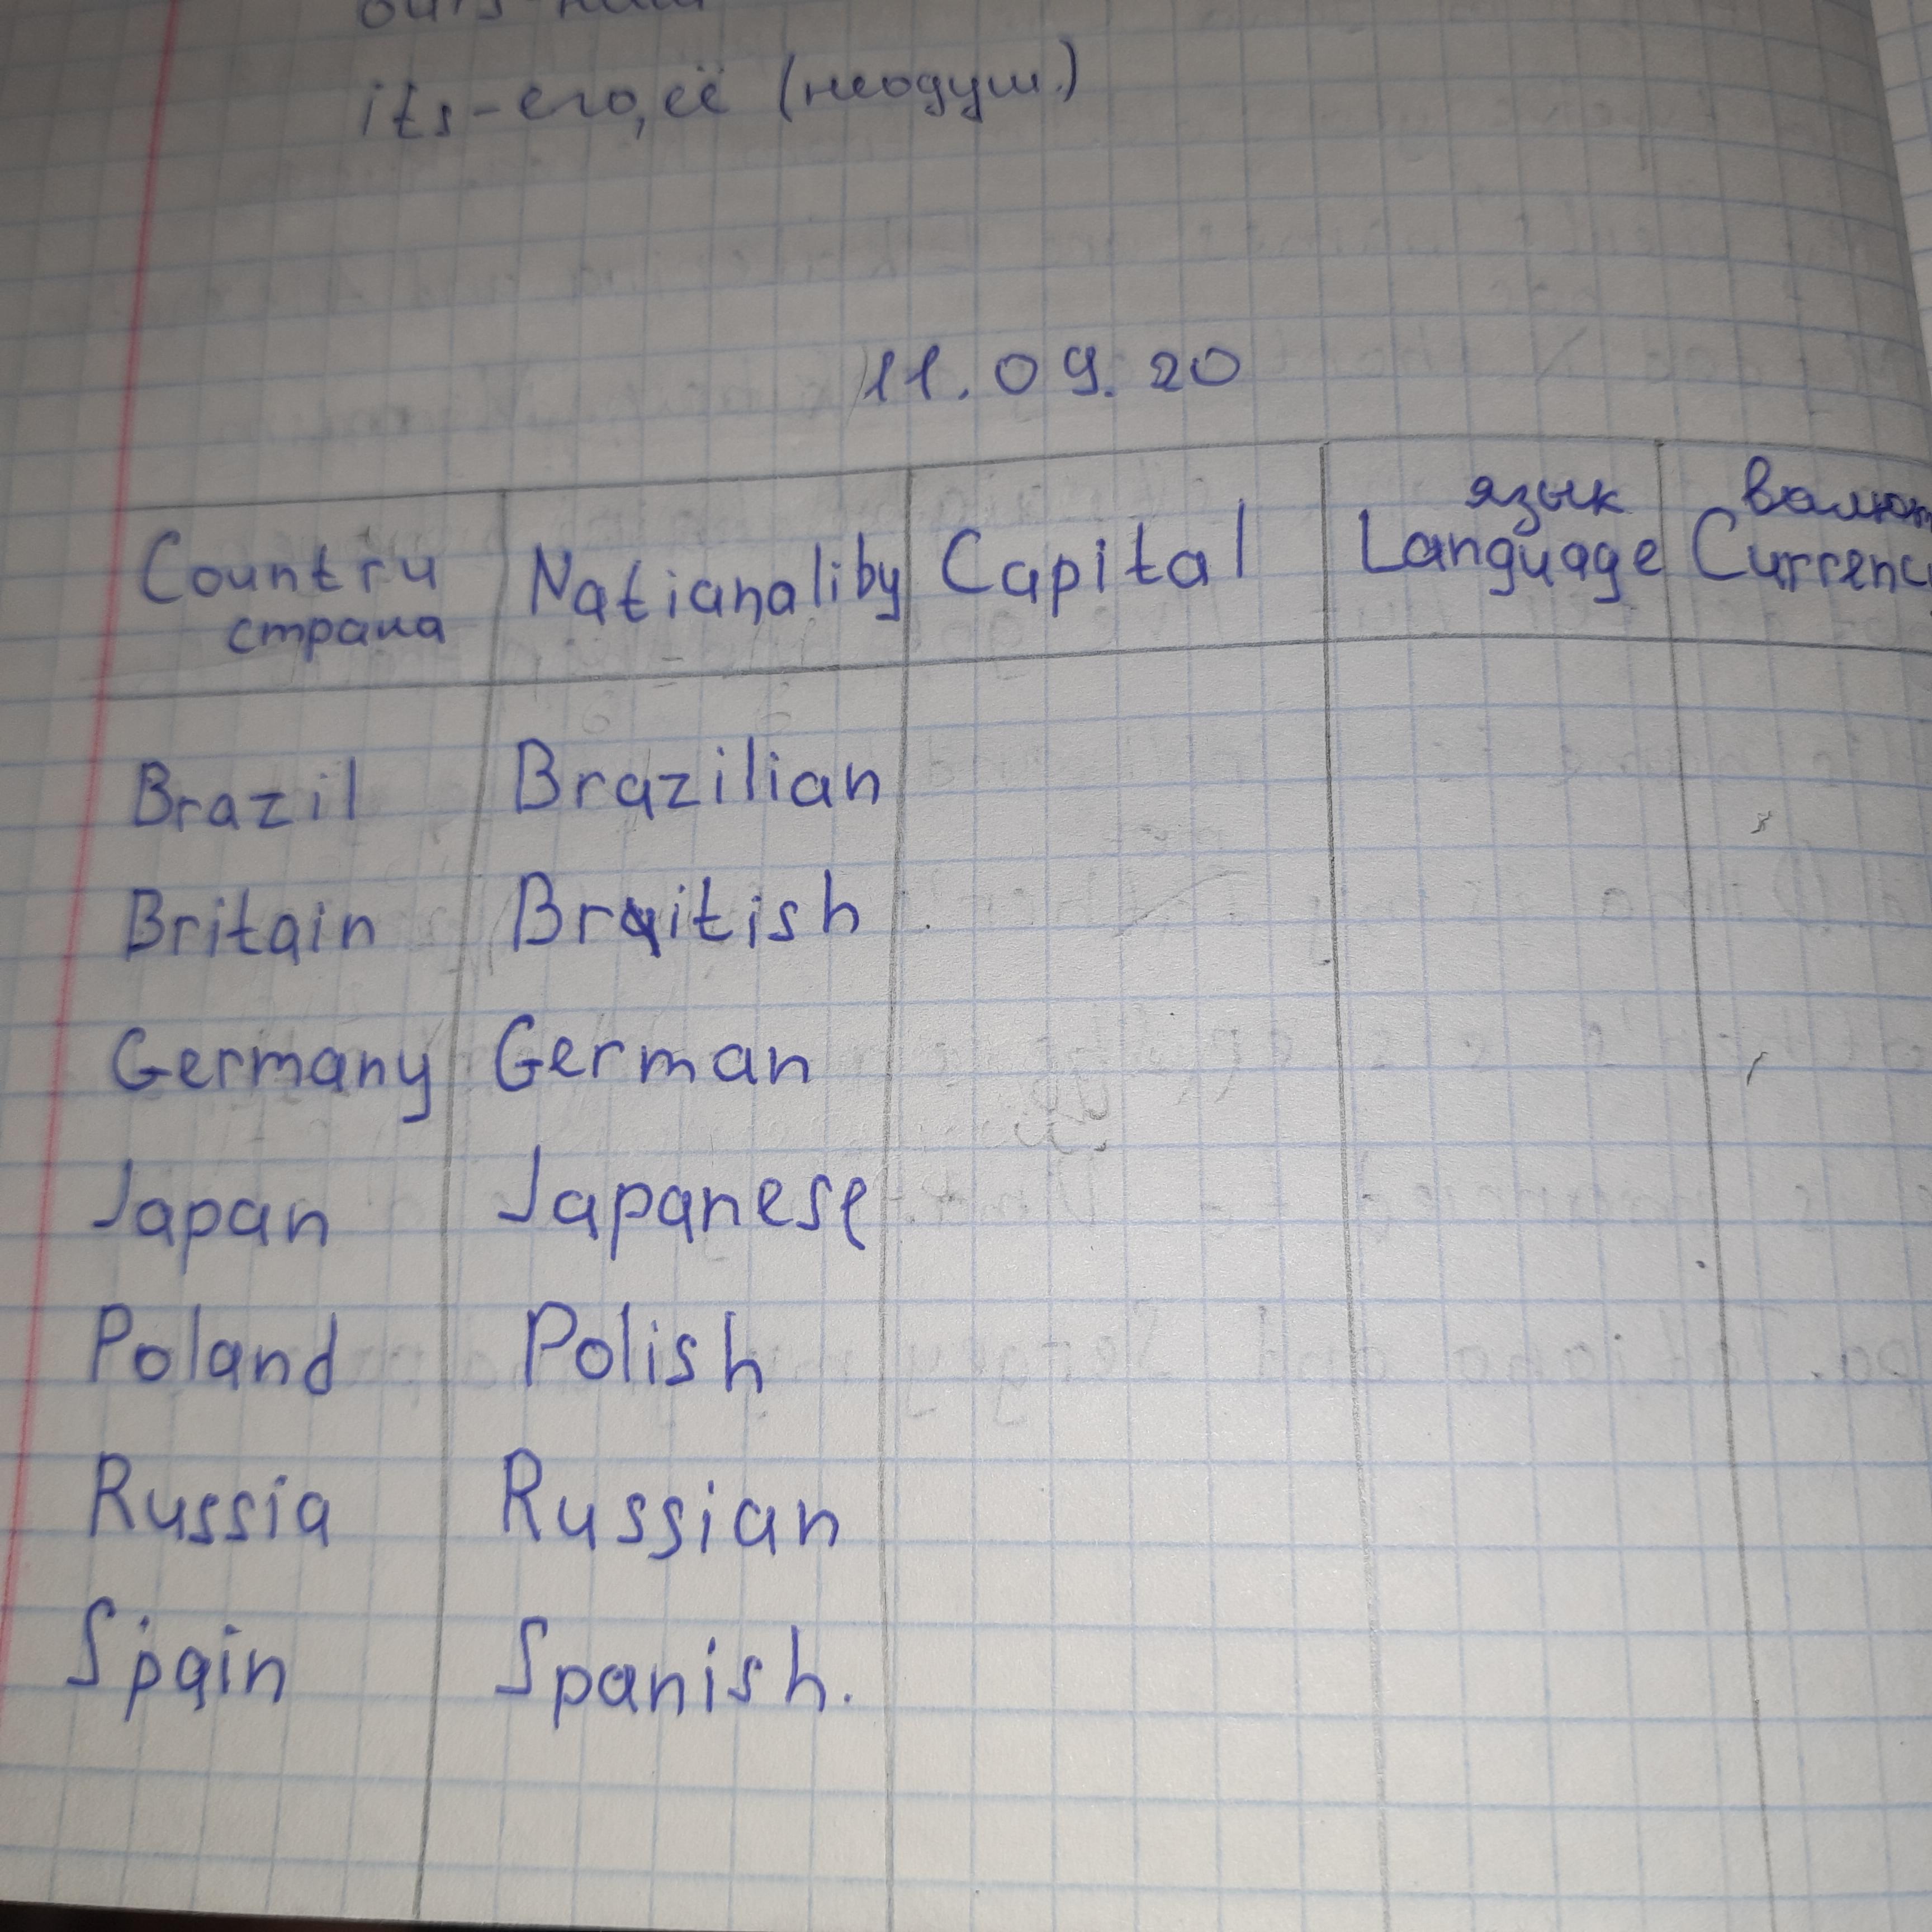 its-его,её (неодуш.)
11.09.20
Countru Natianaliby Capital язык Language Currenc
страна
Brazil Brazilian
Britain Braitish
Germany German
Japan Japanese
Poland Polish
Russia Russian
Spain Spanish.